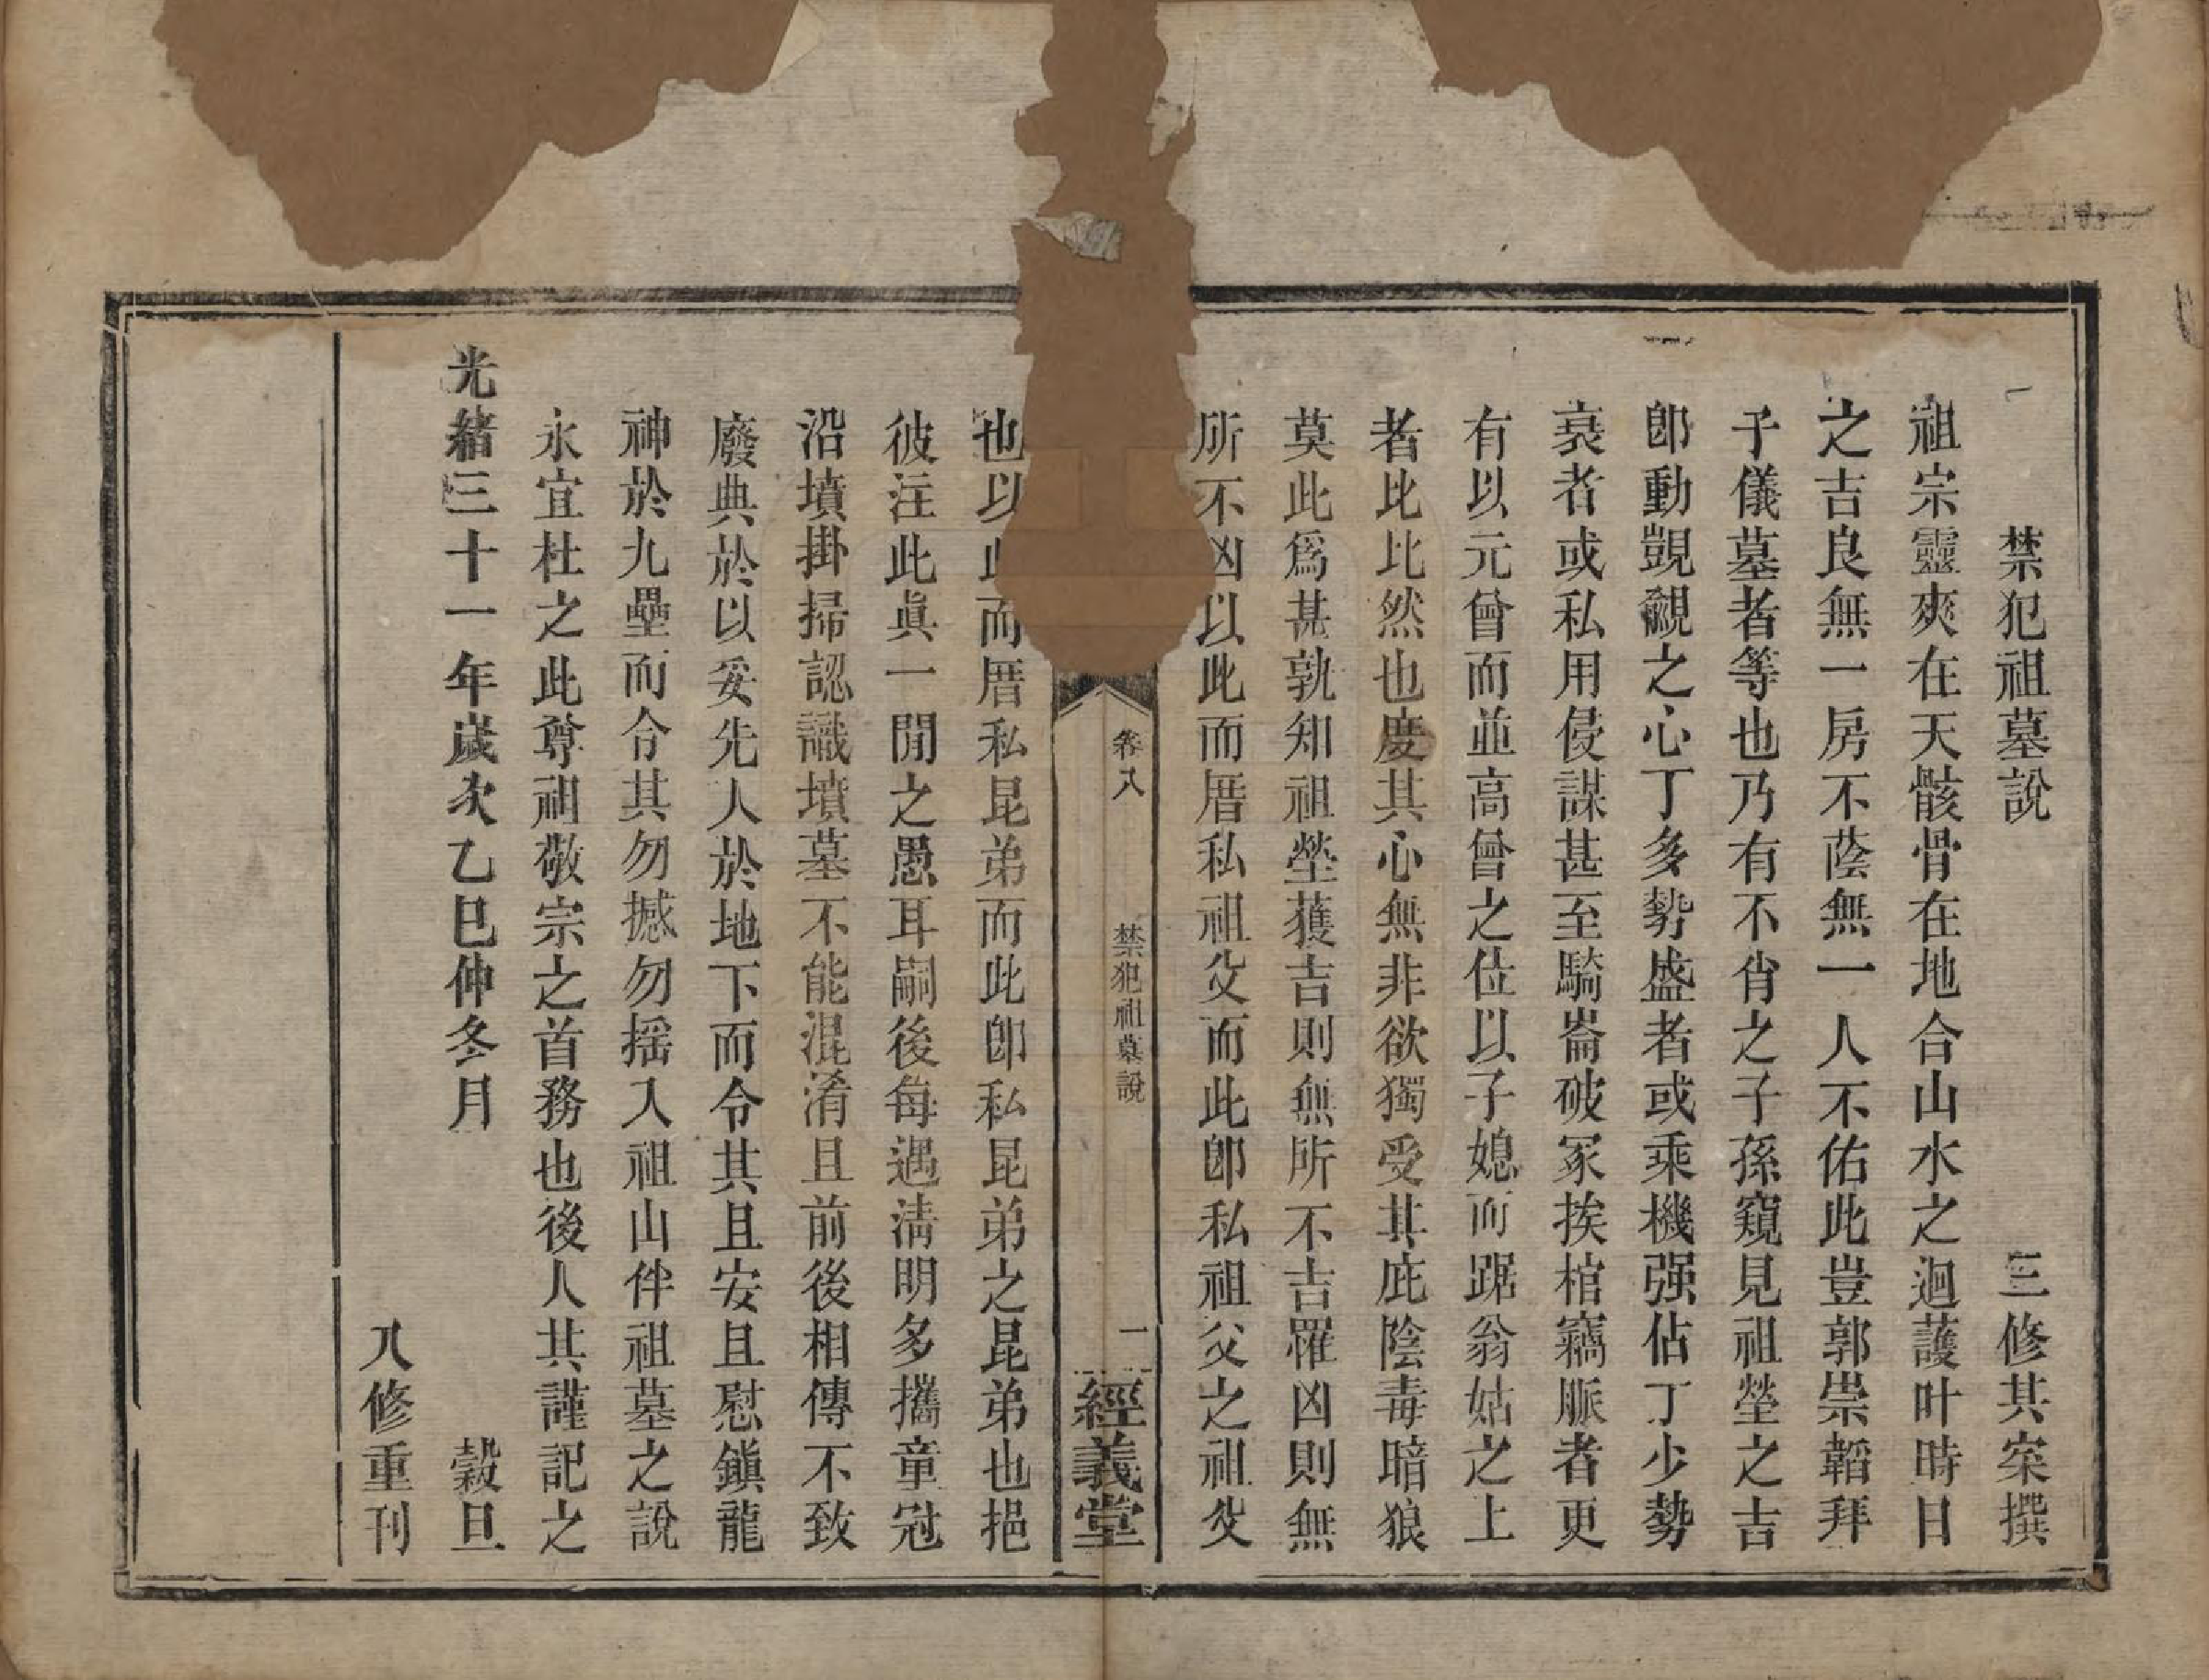 禁犯祖墓說 三修其寀撰
祖宗靈爽在天骸骨在地合山水之迴護叶時日
之吉良無一房不蔭無一人不佑此豈郭崇韜拜
子儀墓者等也乃有不肖之子孫窺見祖塋之吉
卽動覬覦之心丁多勢盛者或乘機强佔丁少勢
衰者或私用侵謀甚至騎崙破冢挨棺竊脈者更
有以元曾而並高曾之位以子媳而踞翁姑之上
者比比然也度其心無非欲獨受其庇陰毒暗狼
莫此爲甚孰知祖塋獲吉則無所不吉罹凶則無
所不凶以此而厝私祖父而此卽私祖父之祖父
卷八 禁犯祖墓說 一 經義堂
也以此而厝私昆弟而此卽私昆弟之昆弟也挹
彼注此眞一閒之愚耳嗣後每遇淸明多攜童冠
沿墳掛掃認識墳墓不能混淆且前後相傳不致
廢典於以妥先人於地下而令其且安且慰鎭龍
神於九壘而令其勿撼勿搖入祖山伴祖墓之說
永宜杜之此尊祖敬宗之首務也後人共謹記之
光緒三十一年歲次乙巳仲冬月 穀旦
八修重刊